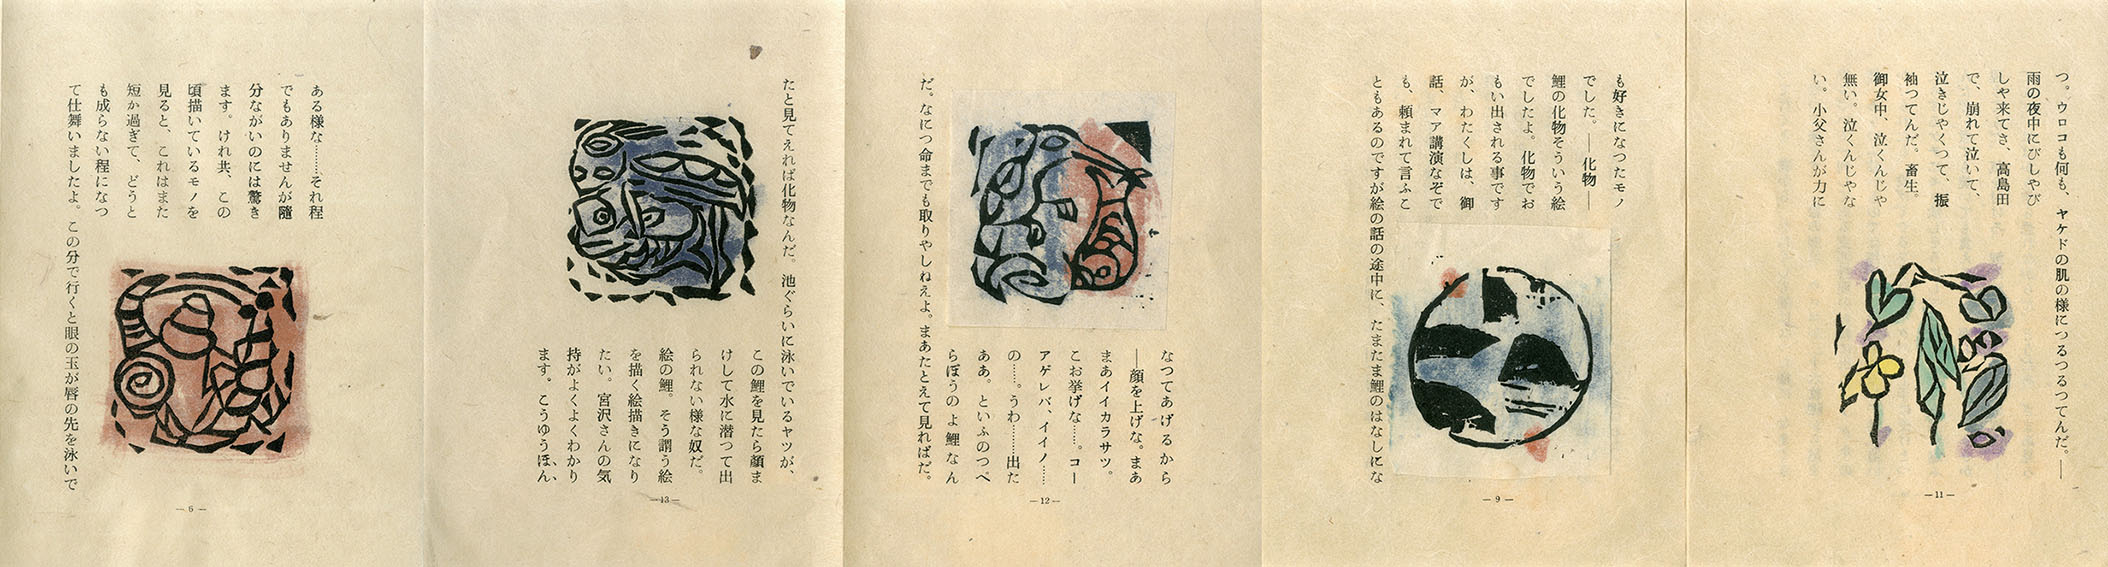 つ。ウロコも何も、ヤケドの肌の様につるつるつてんだ。―
雨の夜中にびしやび
しや来てさ、高島田
で、崩れて泣いて、
泣きじやくつて、振
袖つてんだ。畜生。
御女中、泣くんじや
無い。泣くんじやな
い。小父さんが力に
―11―
も好きになつたモノ
でした。―化物―
鯉の化物そういう絵
でしたよ。化物でお
もい出される事です
が、わたくしは、御
話、マア講演なぞで
も、頼まれて言ふこ
ともあるのですが絵の話の途中に、たまたま鯉のはなしにな
―9―
なつてあげるから
―顔を上げな。まあ
まあイイカラサツ。
こお挙げな……。コー
アゲレバ、イイノ……
の……。うわ……出た
ああ。といふのつぺ
らぼうのよ鯉なん
だ。なにつ命までも取りやしねえよ。まあたとえて見ればだ。
―12―
たと見てえれば化物なんだ。池ぐらいに泳いでいるヤツが、
この鯉を見たら顔ま
けして水に潜つて出
られない様な奴だ。
絵の鯉。そう謂う絵
を描く絵描きになり
たい。宮沢さんの気
持がよくよくわかり
ます。こうゆうほん、
―13―
ある様な……それ程
でもありませんが随
分ながいのには驚き
ます。けれ共、この
頃描いているモノを
見ると、これはまた
短か過ぎて、どうと
も成らない程になつ
て仕舞いましたよ。この分で行くと眼の玉が唇の先を泳いで
―6―